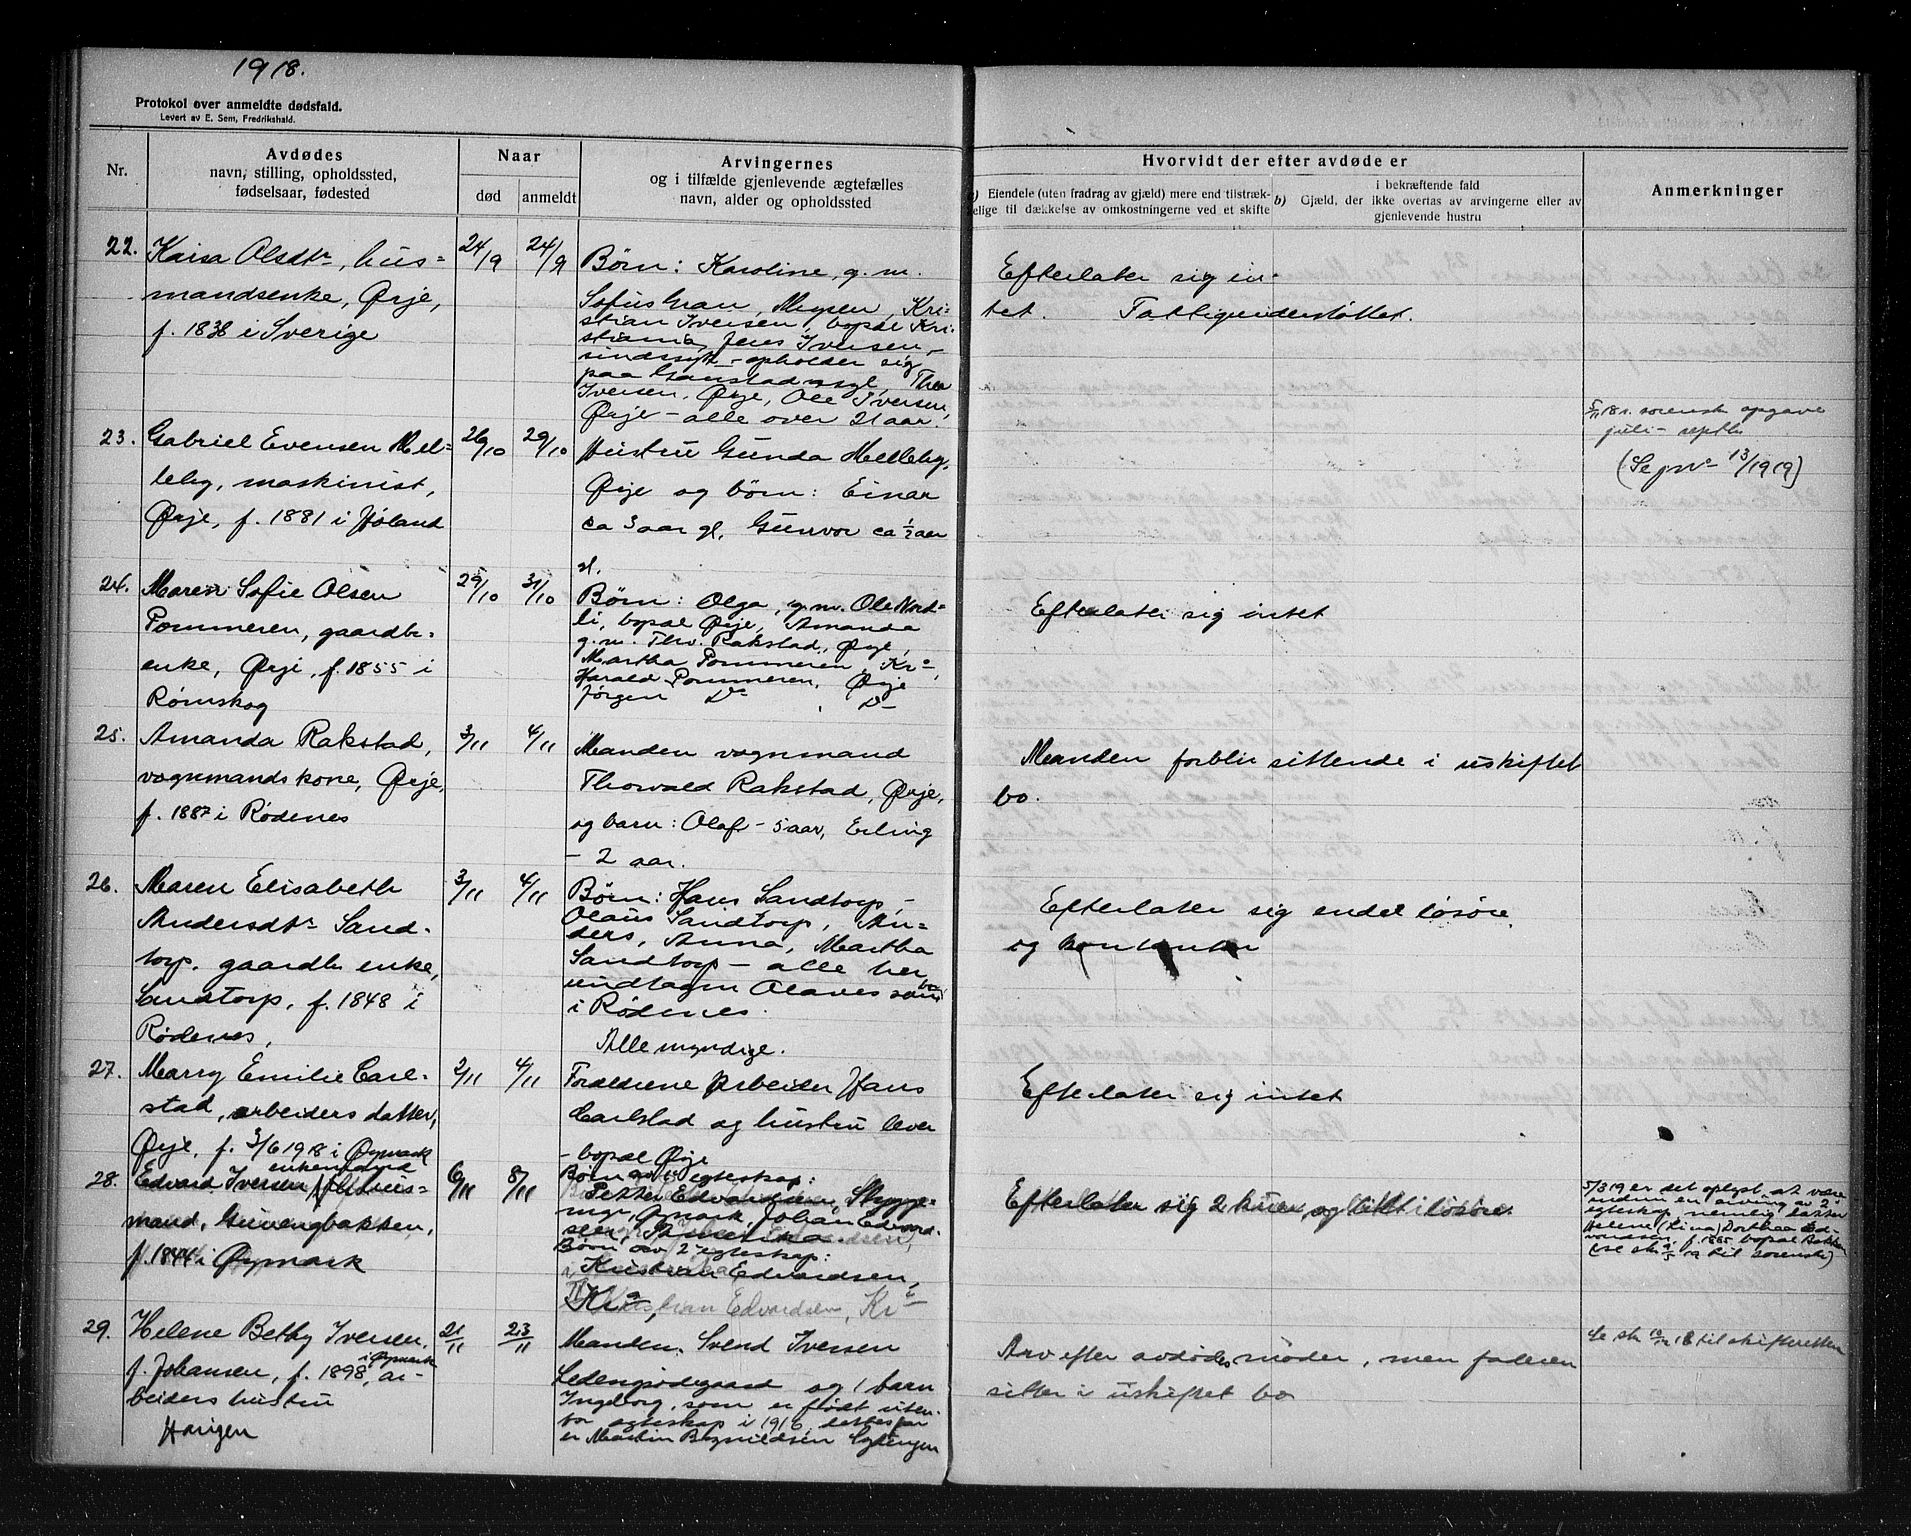 1918.
Protokol over anmeldte dødsfald.
Levert av E. Sem, Fredrikshald.
Nr.
Avdødes
navn, stilling, opholdssted,
fødselsaar, fødested
Naar
død
anmeldt
Arvingernes
og i tilfælde gjenlevende ægtefælles
navn, alder og opholdssted
Hvorvidt der efter avdøde er
a) Eiendele (uten fradrag av gjæld) mere end tilstræk-
kelige til dækkelse av omkostningerne ved et skifte
i bekræftende fald
b) Gjæld, der ikke overtas av arvingerne eller av
gjenlevende hustru
Anmerkninger
22.
Kaisa Olsdtr, hus-
mandsenke, Ørje,
f. 1838 i Sverige
24/9
24/9
Børn: Karoline, g. m.
Sofus Gran, Mysen, Kri-
stian Iversen, bopæl Kri-
stiania, Jens Iversen,
sindssyk - opholder sig
paa Gaustad asyl, Thea
Iversen, Ørje, Ole Iversen,
Ørje - alle over 21 aar.
Efterlater sig in-
tet. Fattigunderstøttet.
23.
Gabriel Evensen Mel-
leby, maskinist,
Ørje, f. 1881 i Høland
26/10
29/10
Hustru Gunda Melleby,
Ørje og børn: Einar
ca 3 aar gl, Gunvor ca 1/2 aar
gl.
5/11 18 s. sorensk. opgave
juli - septbr
(Se pnr 13/1919)
24.
Maren Sofie Olsen
Pommeren, gaardbr.
enke, Ørje, f. 1855 i
Rømskog
29/10
31/10
Børn: Olga, g. m. Ole Nord-
li, bopæl Ørje, Amanda
g. m. Thv. Rakstad, Ørje,
Martha Pommeren, Kra,
Harald Pommeren, Ørje
Jørgen Do Do
Efterlater sig intet
25.
Amanda Rakstad,
vognmandskone, Ørje,
f. 1887 i Rødenes
3/11
4/11
Manden vognmand
Thorvald Rakstad, Ørje,
og barn: Olaf - 5 aar, Erling
- 2 aar.
Manden forblir sittende i uskiftet
bo.
26.
Maren Elisabeth
Andersdtr Sand-
torp, gaardbr enke,
Sandtorp, f. 1848 i
Rødenes,
3/11
4/11
Børn: Hans Sandtorp,
Olaus Sandtorp, An-
ders, Anna, Martha
Sandtorp - alle her
undtagen Olaves som bor
i Rødenes.
Alle myndige.
Efterlater sig endel løsøre
og kontanter
27.
Marry Emilie Carl-
stad, arbeiders datter,
Ørje, f. 3/6 1918 i Øymark
2/11
4/11
Forældrene Arbeider Hans
Carlstad og hustru lever
- bopæl Ørje
Efterlater sig intet
28.
enkemand
Edvard Iversen, hus-
mand, Guvengbakken,
f. 1844 i Øymark
6/11
8/11
Børn av 1 egteskap:
Petter Edvardsen, Skygge-
myr, Ømark, Johan Edvard-
sen,
Børn av 2 egteskap:
Kristian Edvardsen,
Kra,
Kristian Edvardsen, Kra
Efterlater sig 2 kuer og litt i løsøre.
5/3 19 er det oplyst at være
endnu en arving av 2
egteskap nemlig datter
Helene (Lina) Dorthea Ed-
vardsen, f. 1885 bopæl Bakken
29.
Helene Bethy Iversen,
f. Johansen, f. 1898 i Øymark, ar-
beiders hustru
21/11
23/11
Manden Svend Iversen
og 1 barn
Ingeborg, som er født uten-
for egteskap i 1916, dettes far
er Martin
Arv efter avdødes moder, men faderen
sitter i uskiftet bo
Se sk 10/12 18 til skifteretten